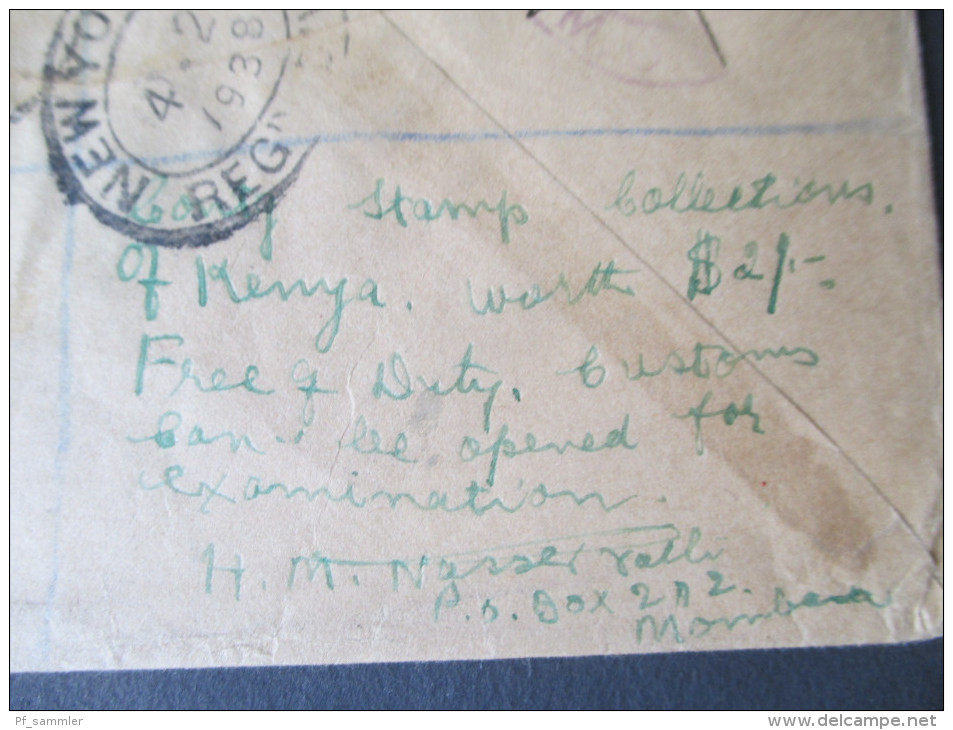 NEW YO
REG'Y
4 - 2
1938
Only Stamp Collections.
Of Kenya. worth $2/-.
Free of Duty. Customs
Can be opened for
examination.
H. M. Nasser
P.O. Box 202.
Mombasa
Pf_sammler
www.delcampe.net